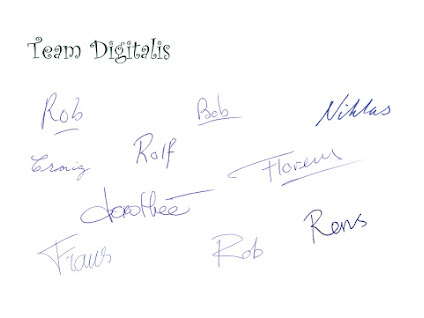 Team Digitalis
Rob Bob Niklas
Craig Rolf Florent
Dorothee
Frans Rob Rens